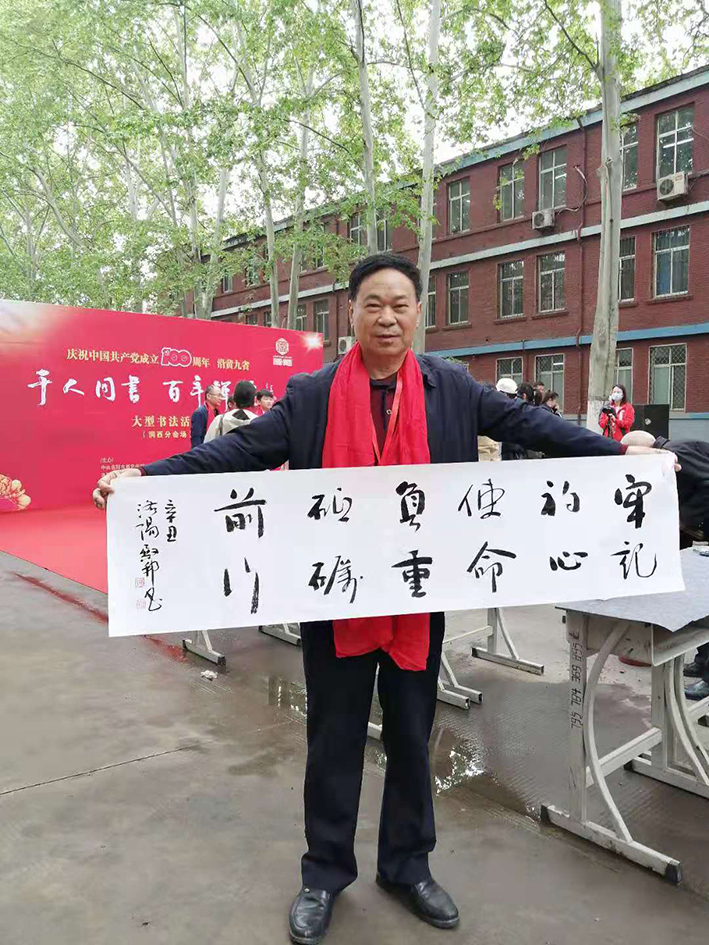 庆祝中国共产党成立100周年 沿黄九省
千人同书 百年辉
大型书法活
（涧西分会场）
牢记
初心
使命
負重
砥礪
前行
辛丑
洛陽
书